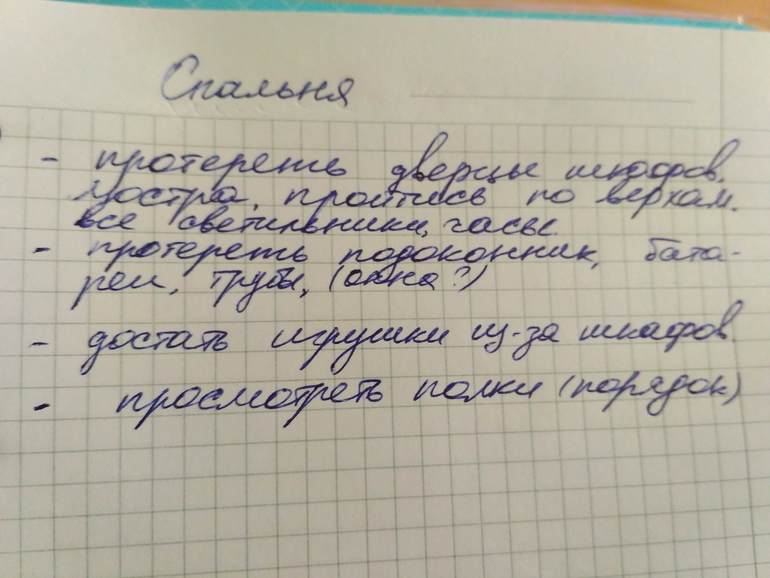 Спальня
- протереть дверцы шкафов.
люстра, пройтись по верхам.
все светильники, часы.
- протереть подоконник, бата-
реи, трубы, (окна?)
- достать игрушки из-за шкафов.
- просмотреть полки (порядок)